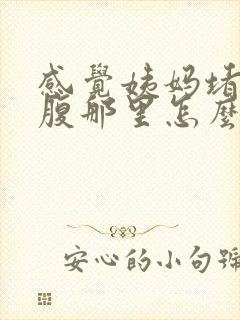 感覺姨妈堵
腹那里怎麼
安心的小句號